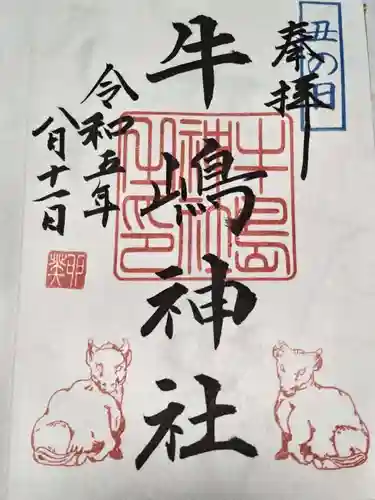 丑の日
奉拝
牛嶋神社
牛島
神社
之印
令和五年
八月十一日